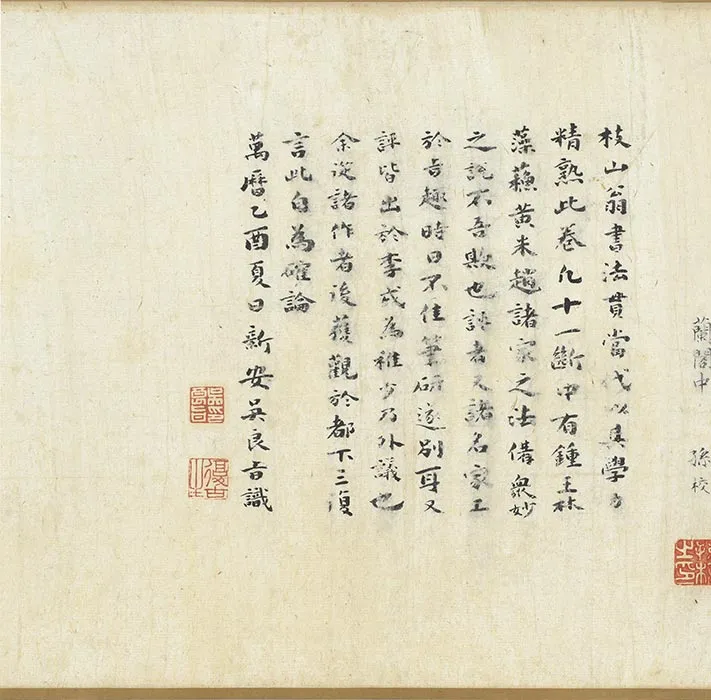 蘭閣中 孫校
枝山翁書法貫當代以其學力
精熟此卷凡十一斷中有鍾王林
藻蘓黃米趙諸家之法備衆妙
之說不吾欺也評者又諸名家工
於旨趣時日不佳筆研遂別耳又
評皆出於李戎為稚少乃外議也
余從諸作者後獲觀於都下三復
言此自為確論
萬曆乙酉夏日新安吳良旨識